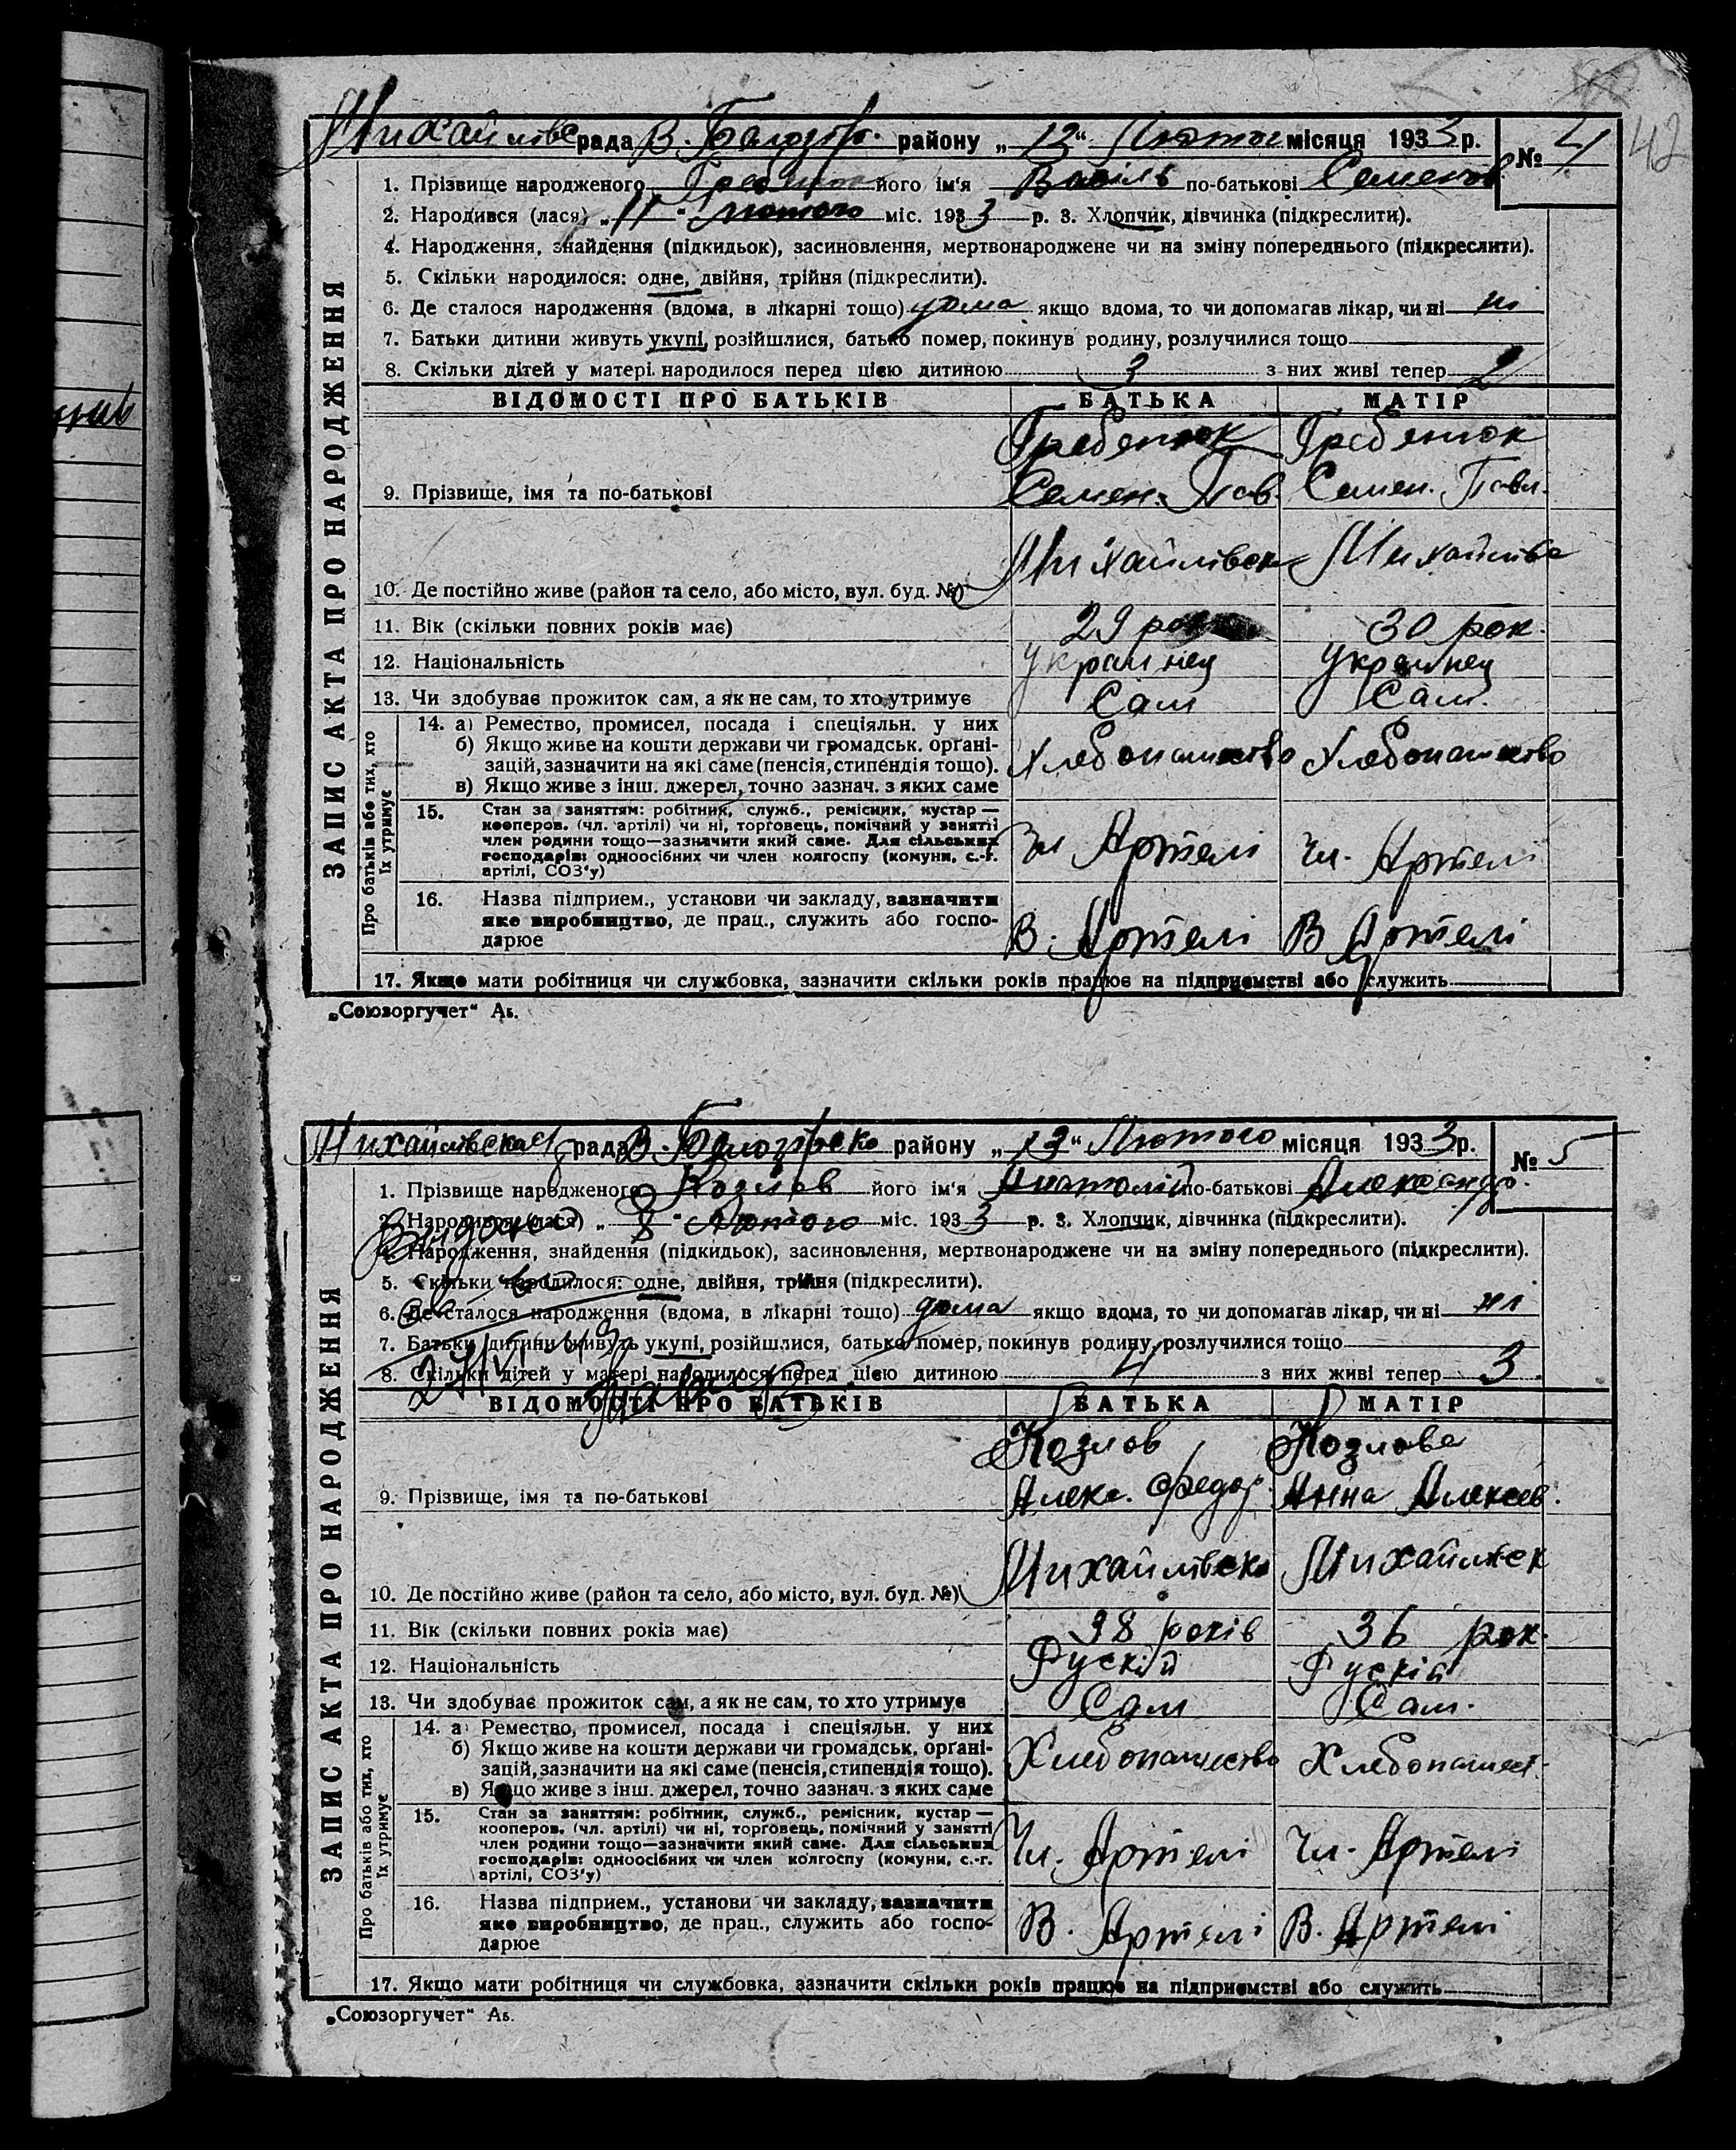 42
Михайлівс рада В. Білозір. району „12“ Лютого місяця 1933 р. № 4
1. Прізвище народженого його ім'я Василь по-батькові Семенов
2. Народився (лася) „11“ лютого міс. 1933 р. 3. Хлопчик, дівчинка (підкреслити).
4. Народження, знайдення (підкидьок), засиновлення, мертвонароджене чи на зміну попереднього (підкреслити).
5. Скільки народилося: одне, двійня, трійня (підкреслити).
6. Де сталося народження (вдома, в лікарні тощо) дома якщо вдома, то чи допомагав лікар, чи ні ні
7. Батьки дитини живуть укупі, розійшлися, батько помер, покинув родину, розлучилися тощо
8. Скільки дітей у матері народилося перед цією дитиною 3 з них живі тепер 2
ВІДОМОСТІ ПРО БАТЬКІВ БАТЬКА МАТІР
Гребенюк Гребенюк
9. Прізвище, імя та по-батькові Семен. Пав. Семен. Павл.
10. Де постійно живе (район та село, або місто, вул. буд. №) Михайлівск Михайлівка
11. Вік (скільки повних років має) 29 рок 30 рок.
12. Національність Украинец Украинец
13. Чи здобуває прожиток сам, а як не сам, то хто утримує Сам Сам.
14. а) Ремество, промисел, посада і спеціяльн. у них
б) Якщо живе на кошти держави чи громадськ. орґані-
зацій, зазначити на які саме (пенсія, стипендія тощо). Хлебопашество Хлебопашество
в) Якщо живе з інш. джерел, точно зазнач. з яких саме
15. Стан за заняттям: робітник, служб., ремісник, кустар —
кооперов. (чл. артілі) чи ні, торговець, помічний у занятті
член родини тощо—зазначити який саме. Для сільських
господарів: одноосібних чи член колгоспу (комуни, с.-г.
артілі, СОЗ'у) Чл Артелі Чл. Артелі
16. Назва підприєм., установи чи закладу, зазначити
яке виробництво, де прац., служить або госпо-
дарює В. Артелі В Артелі
17. Якщо мати робітниця чи службовка, зазначити скільки років працює на підприємстві або служить
ЗАПИС АКТА ПРО НАРОДЖЕННЯ
Про батьків або тих, хто
їх утримує
„Союзоргучет“ Аь.
Михайлівская рада В. Білозірско району „13“ Лютого місяця 1933 р. № 5
1. Прізвище народженого Козлов його ім'я Анатолій по-батькові Александр.
2. Народився (лася) „8“ Лютого міс. 1933 р. 3. Хлопчик, дівчинка (підкреслити).
4. Народження, знайдення (підкидьок), засиновлення, мертвонароджене чи на зміну попереднього (підкреслити).
5. Скільки народилося: одне, двійня, трійня (підкреслити).
6. Де сталося народження (вдома, в лікарні тощо) дома якщо вдома, то чи допомагав лікар, чи ні ні
7. Батьки дитини живуть укупі, розійшлися, батько помер, покинув родину, розлучилися тощо
8. Скільки дітей у матері народилося перед цією дитиною 4 з них живі тепер 3
ВІДОМОСТІ ПРО БАТЬКІВ БАТЬКА МАТІР
Козлов Козлова
9. Прізвище, імя та по-батькові Алекс. Федор. Анна Алексев.
10. Де постійно живе (район та село, або місто, вул. буд. №) Михайлівска Михайлівск
11. Вік (скільки повних років має) 38 років 36 рок.
12. Національність Рускій Рускій
13. Чи здобуває прожиток сам, а як не сам, то хто утримує Сам Сам.
14. а) Ремество, промисел, посада і спеціяльн. у них
б) Якщо живе на кошти держави чи громадськ. орґані-
зацій, зазначити на які саме (пенсія, стипендія тощо). Хлебопашество Хлебопашест.
в) Якщо живе з інш. джерел, точно зазнач. з яких саме
15. Стан за заняттям: робітник, служб., ремісник, кустар —
кооперов. (чл. артілі) чи ні, торговець, помічний у занятті
член родини тощо—зазначити який саме. Для сільських
господарів: одноосібних чи член колгоспу (комуни, с.-г.
артілі, СОЗ'у) Чл. Артелі Чл. Артелі
16. Назва підприєм., установи чи закладу, зазначити
яке виробництво, де прац., служить або госпо-
дарює В. Артелі В. Артелі
17. Якщо мати робітниця чи службовка, зазначити скільки років працює на підприємстві або служить
ЗАПИС АКТА ПРО НАРОДЖЕННЯ
Про батьків або тих, хто
їх утримує
„Союзоргучет“ Аь.